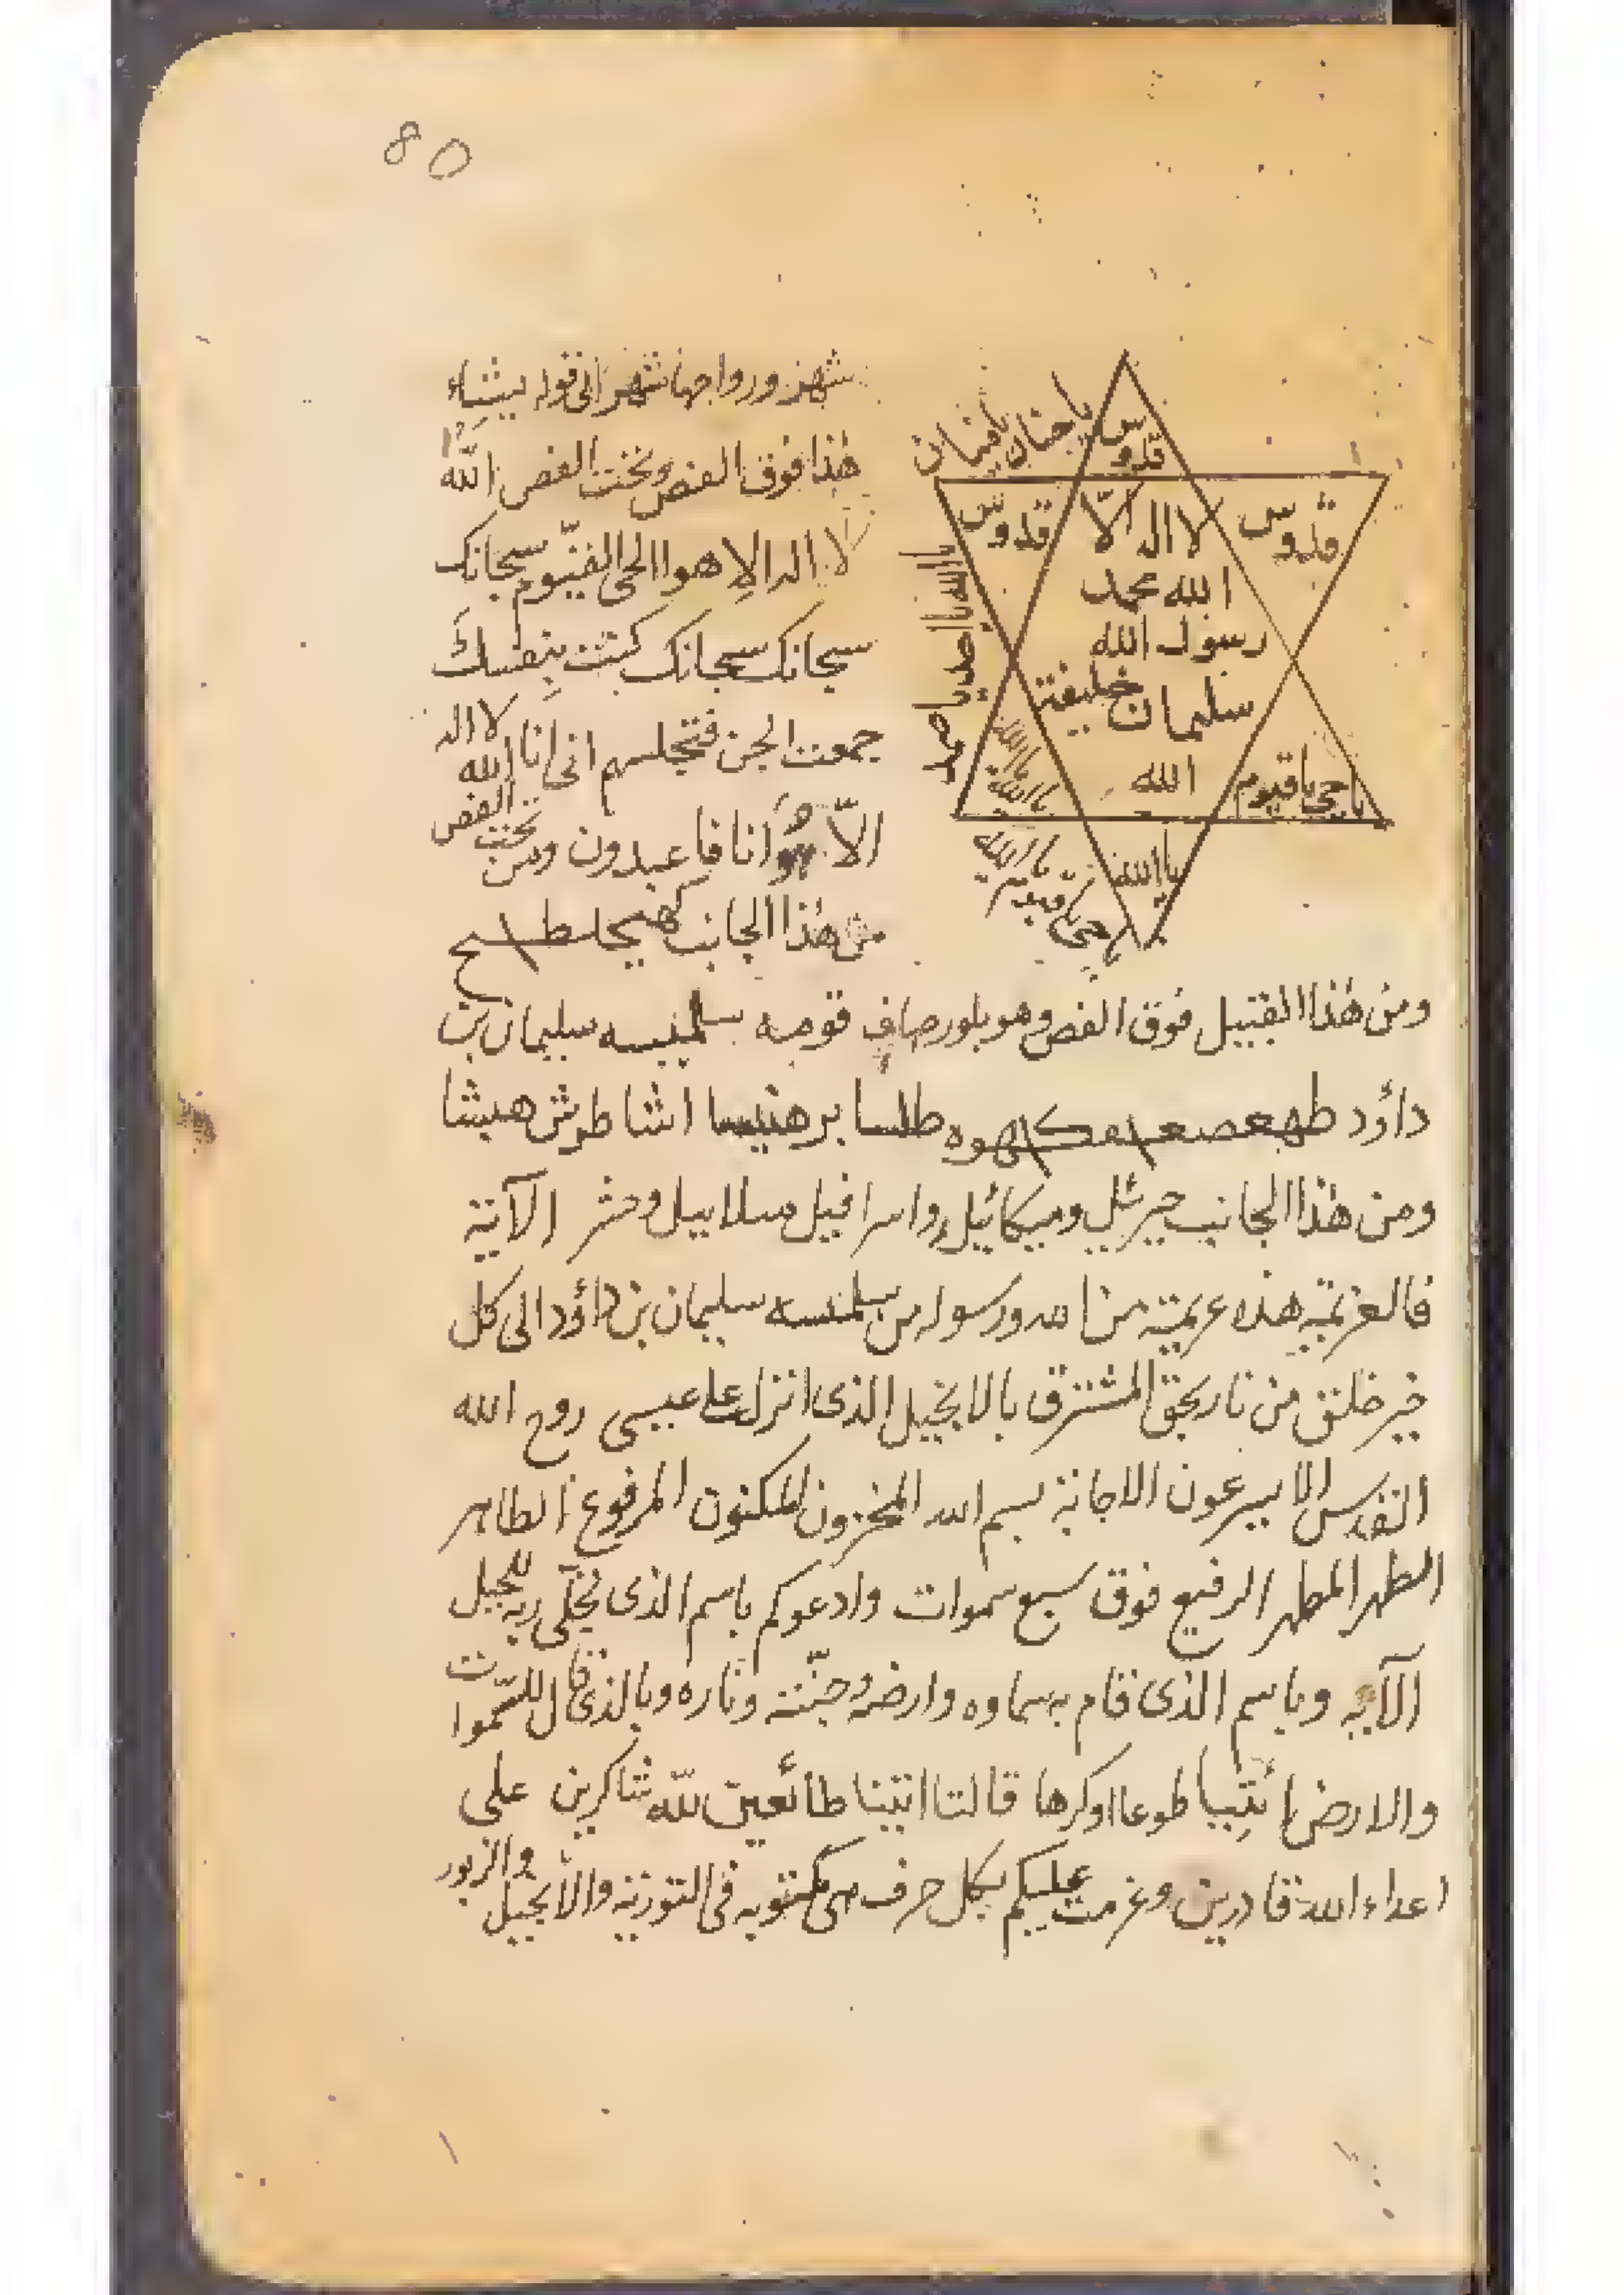 80
شهر ورواحها شهر الى قوله يشاء
هذا فوق الفص وتحت الفص الله
لا اله الا هو الحى القيّوم سبحانك
سبحانك سبحانك كتبت بنفسك
جمعت الجن فتجلسهم انى انا الله لا اله
الاّ هُوَ انا فاعبدون ومن تحت الفص
من هذا الجانب
قدوس
يا حنان يا منان
قدوس
قدوس
لا اله الاّ
الله محمد
رسول الله
سليمان خليفة
الله
يا الله يا احد يا صمد
يا الله
يا الله
يا حى يا قيوم
يا الله
يا الله
يا حى يا قيوم
ومن هذا القبيل فوق الفص وهو بلور صاف سليمان بن
داؤد
ومن هذا الجانب جبرئيل وميكائيل واسرافيل الآية
فالعزيمة هذه عزيمة من الله ورسوله من سليمان بن داؤد الى كل
خلق من نار بحق بالانجيل الذى انزل على عيسى روح الله
القدس الا يسرعون الاجابة بسم الله المخزون المكنون المرفوع الطاهر
الطهر المطهر الرفيع فوق سبع سموات وادعوكم باسم الذى تجلّى ربه للجبل
الآية وباسم الذى قام به سماوه وارضه وجنّته وناره وبالذى قال للسّموات
والارض ائتِيا طوعا اوكرها قالتا اتينا طائعين لله شاكرين على
اعداء الله قادرين وعزمت عليكم بكل حرف هى مكتوبه فى التورية والانجيل والزبور